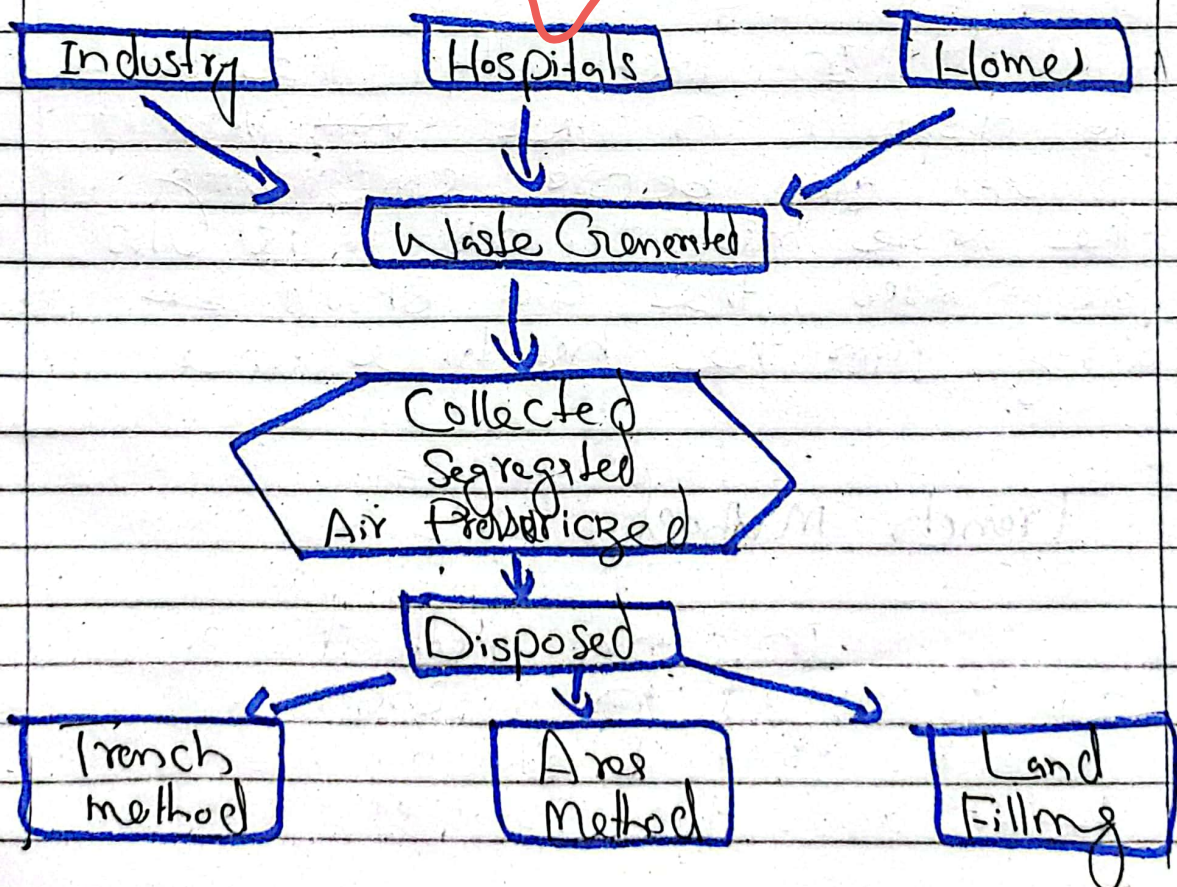 Industry
Hospitals
Home
Waste Generated
Collected
Segregated
Air
Disposed
Trench
method
Area
Method
Land
Filling